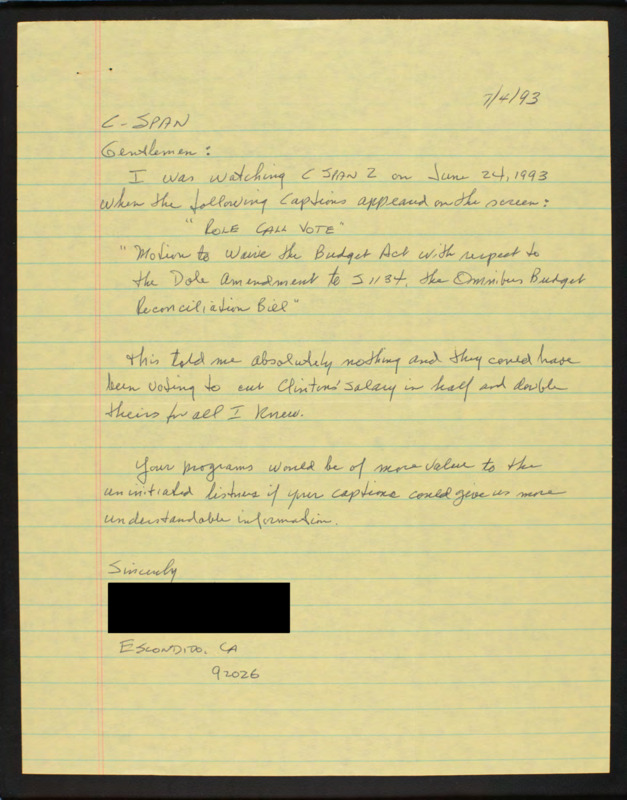 7/4/93
C-SPAN
Gentlemen:
I was watching C SPAN 2 on June 24, 1993
when the following captions appeared on the screen:
"ROLE CALL VOTE"
"Motion to Waive the Budget Act with respect to
the Dole amendment to S1134, the Omnibus Budget
Reconciliation Bill"
This told me absolutely nothing and they could have
been voting to cut Clintons' salary in half and double
theirs for all I knew.
Your programs would be of more value to the
uninitiated listners if your captions could give us more
understandable information.
Sincerely
ESCONDIDO, CA
92026